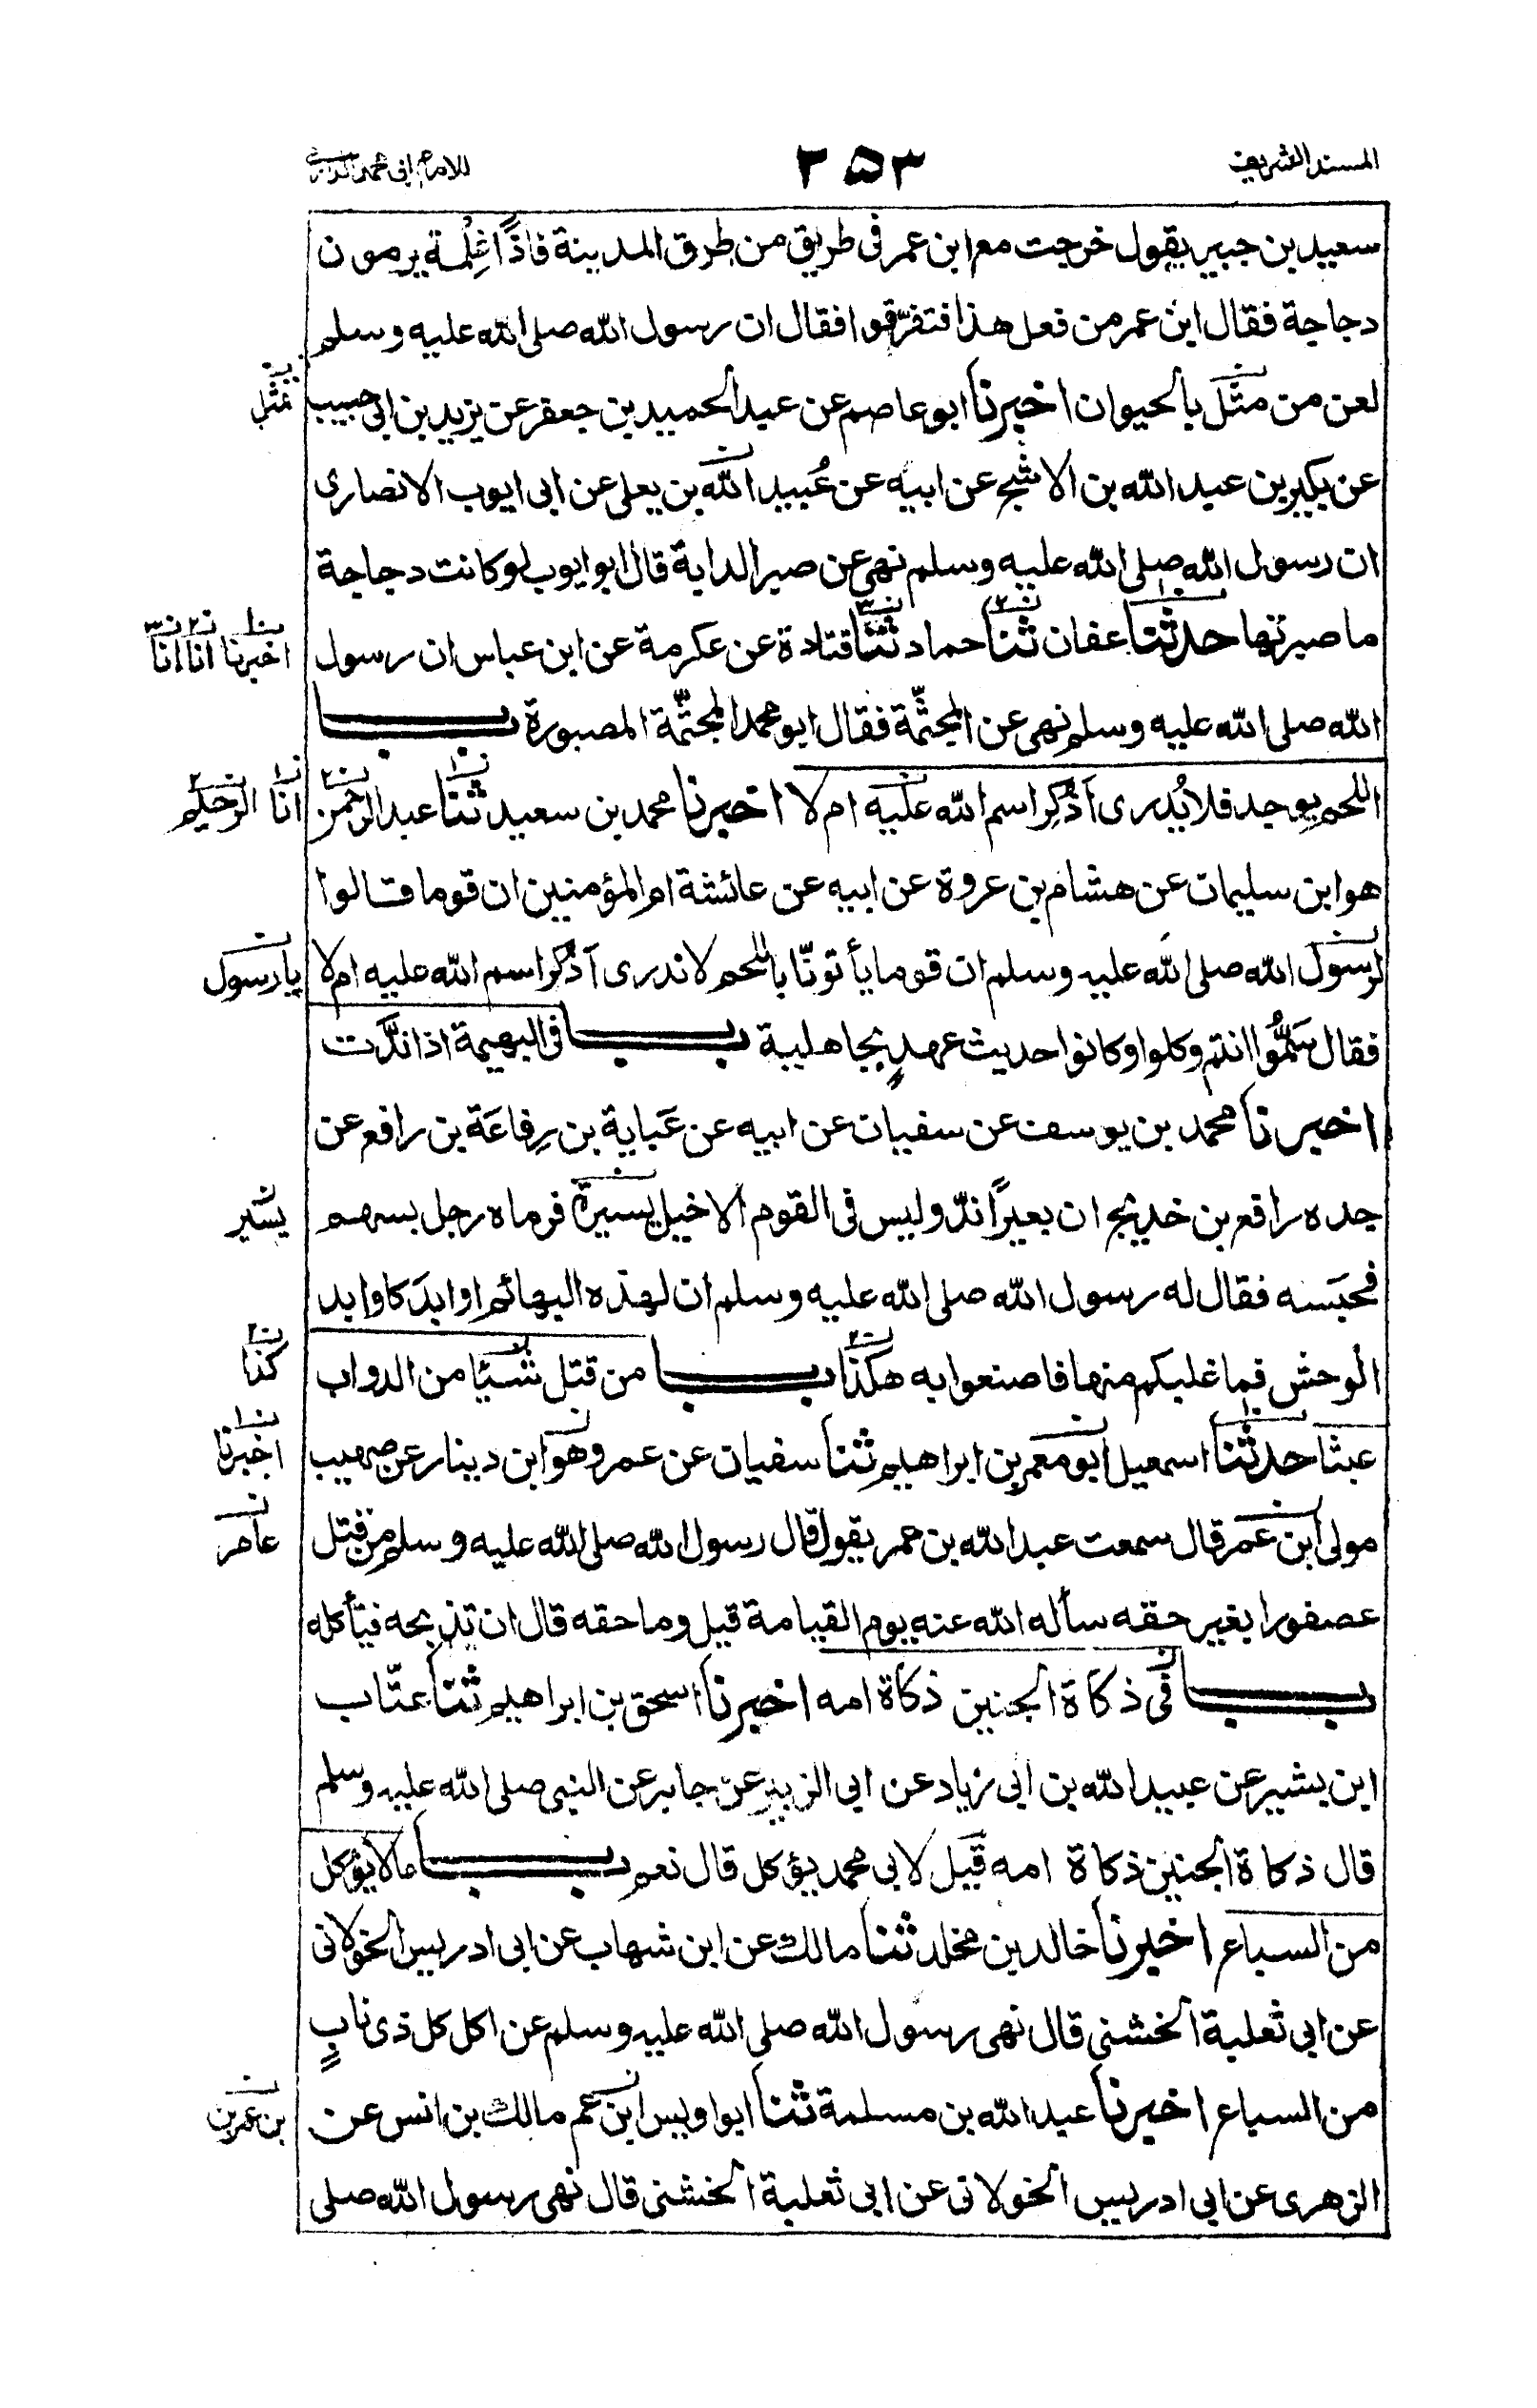 المسند الشريف ٢٥٣ للامام ابى محمد الدارمى
سعيد بن جبير يقول خرجت مع ابن عمر فى طريق من طرق المدينة فاذًا غِلْمة يرمون
دجاجة فقال ابن عمر من فعل هذا فتفرّقوا فقال ان رسول الله صلى الله عليه وسلم
لعن من مثّل بالحيوان اخبرنا ابو عاصم عن عبد الحميد بن جعفر عن يزيد بن ابى حبيب
يمثل
عن بكير بن عبد الله بن الاشج عن ابيه عن عُبيد الله بن يعلى عن ابى ايوب الانصارى
ان رسول الله صلى الله عليه وسلم نهى عن صبر الدابة قال ابو ايوب لو كانت دجاجة
ما صبرتها حدثنا عفان ثنا حماد ثنا قتادة عن عكرمة عن ابن عباس ان رسول
اخبرنا انا انا
الله صلى الله عليه وسلم نهى عن المجثّمة فقال ابو محمد المجثّمة المصبورة باب
اللحم يوجد فلا يُدرى أذُكِرَ اسم الله عليه ام لا اخبرنا محمد بن سعيد ثنا عبد الرحمن
انا الرحيم
هو ابن سليمان عن هشام بن عروة عن ابيه عن عائشة ام المؤمنين ان قوما قالوا
لرسول الله صلى الله عليه وسلم ان قوما يأتونّا باللحم لا ندرى أذُكر اسم الله عليه ام لا
يا رسول
فقال سَمُّوا انتم وكلوا وكانوا حديث عهدٍ بجاهلية باب فى البهيمة اذا ندّت
اخبرنا محمد بن يوسف عن سفيان عن ابيه عن عَباية بن رِفاعَة بن رافع عن
جده رافع بن خديج ان بعيرًا ندّ وليس فى القوم الا خيل يسيرة فرماه رجل بسهم
يسير
فحبَسه فقال له رسول الله صلى الله عليه وسلم ان لهذه البهائم اوابدَ كاوابد
الوحش فما غلبكم منها فاصنعوا به هكذا باب من قتل شيئا من الدواب
كذا
عبثا حدثنا اسمعيل ابو معمر بن ابراهيم ثنا سفيان عن عمرو وهو ابن دينار عن صهيب
اخبرنا
مولى ابن عمر قال سمعت عبد الله بن عمر يقول قال رسول الله صلى الله عليه وسلم من قتل
عامر
عصفورا بغير حقه سأله الله عنه يوم القيامة قيل وما حقه قال ان تذبحه فيتأكله
باب فى ذكاة الجنين ذكاة امه اخبرنا اسحق بن ابراهيم ثنا عتّاب
ابن بشير عن عبيد الله بن ابى زياد عن ابى الزبير عن جابر عن النبى صلى الله عليه وسلم
قال ذكاة الجنين ذكاة امه قيل لابى محمد يؤكل قال نعم باب ما لا يؤكل
من السباع اخبرنا خالد بن مخلد ثنا مالك عن ابن شهاب عن ابى ادريس الخولانى
عن ابى ثعلبة الخشنى قال نهى رسول الله صلى الله عليه وسلم عن اكل كل ذى نابٍ
من السباع اخبرنا عبد الله بن مسلمة ثنا ابو اويس ابن عم مالك بن انس عن
بن عمر بن
الزهرى عن ابى ادريس الخولانى عن ابى ثعلبة الخشنى قال نهى رسول الله صلى